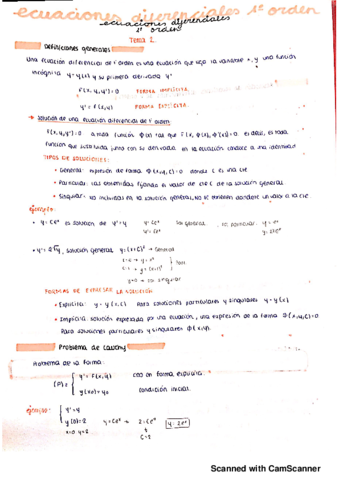 ecuaciones diferenciales 1º orden
ecuaciones diferenciales
1º orden
Tema 2
Definiciones generales
Una ecuación diferencial de 1º orden es una ecuación que liga la variable x, y una función
incógnita y=y(x) y su primera derivada y'
f(x,y,y')=0 FORMA IMPLÍCITA
y'=f(x,y) FORMA EXPLÍCITA
→ Solución de una ecuación diferencial de 1º orden
F(x,y,y')=0 a toda función Φ(x) tal que F(x, Φ(x), Φ'(x))=0. es decir, es toda
función que sustituida junto con su derivada en la ecuación conduce a una identidad
TIPOS DE SOLUCIONES:
• General: expresión de forma Φ(x,y,C)=0 donde C es una cte
• Particular: las obtenidas fijando el valor de cte C de la solución general
• Singular: no incluidas en la solución general. No se obtienen dándole un valor a la cte
ejemplo:
• y=Ce^x es solución de y'=y y=Ce^x sol. general sol. particular y=e^x
y'=Ce^x y=2e^x
• y'=2√y, solución general y=(x+C)²
y=0 → sol. singular
FORMAS DE EXPRESAR LA SOLUCIÓN
• Explícita: y=y(x,C) Para soluciones particulares y singulares y=y(x)
• Implícita: solución expresada por una ecuación, una expresión de la forma Φ(x,y,C)=0
Para soluciones particulares y singulares Φ(x,y)
Problema de Cauchy
Problema de la forma:
(P)= y'=F(x,y) edo en forma explícita
y(x0)=y0 condición inicial.
ejemplo: y'=y
y(0)=2 y=Ce^x → 2=Ce^0 y=2e^x
x=0 y=2 C=2
Scanned with CamScanner